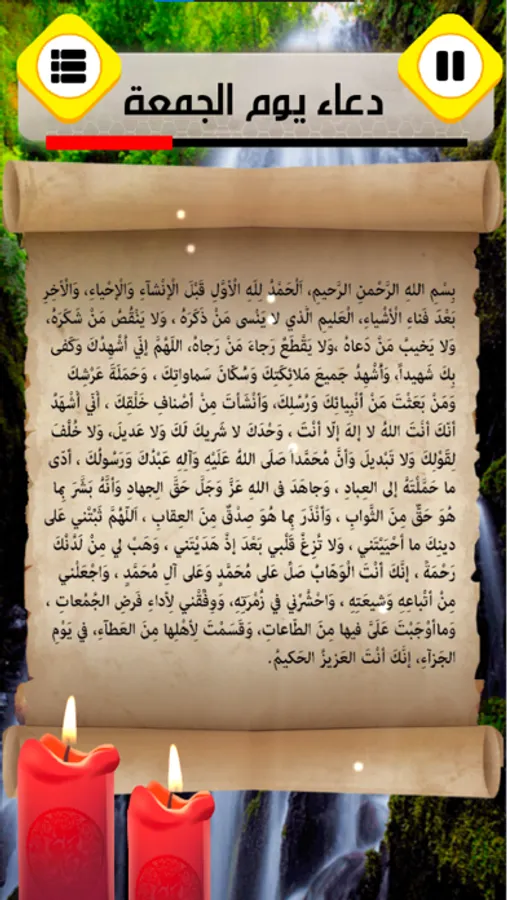 دعاء يوم الجمعة
بِسْمِ اللهِ الرَّحْمنِ الرَّحيمِ، اَلْحَمْدُ لِلّهِ الْأَوَّلِ قَبْلَ الْإِنْشآءِ وَالْإِحْياءِ، وَالْآخِرِ
بَعْدَ فَناءِ الْأَشْياءِ، الْعَليمِ الَّذي لا يَنْسى مَنْ ذَكَرَهُ ، وَلا يَنْقُصُ مَنْ شَكَرَهُ،
وَلا يَخيبُ مَنْ دَعاهُ ،وَلا يَقْطَعُ رَجاءَ مَنْ رَجاهُ، اللهُمَّ إنّي اُشْهِدُكَ وَكَفى
بِكَ شَهيداً، وَاُشْهِدُ جَميعَ مَلائِكَتِكَ وَسُكّانَ سَماواتِكَ ، وَحَمَلَةَ عَرْشِكَ
وَمَنْ بَعَثْتَ مَنْ أَنْبِيائِكَ وَرُسُلِكَ، وَأَنْشَأتَ مِنْ أَصْنافِ خَلْقِكَ ، أَنّي أَشْهَدُ
أَنَّكَ أَنْتَ اللهُ لا إلهَ إلّا أنْتَ ، وَحْدَكَ لا شَريكَ لَكَ وَلا عَديلَ، وَلا خُلْفَ
لِقَوْلِكَ وَلا تَبْديلَ وَأنَّ مُحَمَّداً صَلَى اللهُ عَلَيْهِ وَآلِهِ عَبْدُكَ وَرَسُولُكَ ، أدّى
ما حَمَّلْتَهُ إلى العِبادِ ، وَجاهَدَ في اللهِ عَزَّ وَجَلَّ حَقَّ الجِهادِ وَأنَّهُ بَشَّرَ بِما
هُوَ حَقٌّ مِنَ الثَّوابِ ، وَأنْذَرَ بِما هُوَ صِدْقٌ مِنَ العِقابِ ، اَللهُمَّ ثَبِّتْني عَلى
دينِكَ ما أحْيَيْتَني ، وَلا تُزِغْ قَلْبي بَعْدَ إذْ هَدَيْتَني ، وَهَبْ لي مِنْ لَدُنْكَ
رَحْمَةً ، إنَّكَ أنْتَ الْوَهّابُ صَلِّ عَلى مُحَمَّدٍ وَعَلى آلِ مُحَمَّدٍ ، وَاجْعَلْني
مِنْ أتْباعِهِ وَشيعَتِهِ ، وَاحْشُرْني في زُمْرَتِهِ، وَوفِّقْني لِأداءِ فَرضِ الجُمُعاتِ ،
وَماأوْجَبْتَ عَلَيَّ فيها مِنَ الطّاعاتِ، وَقَسَمْتَ لِأهْلِها مِنَ العَطآءِ، في يَوْمِ
الجَزآءِ، إنَّكَ أنْتَ العَزيزُ الحَكيمُ.